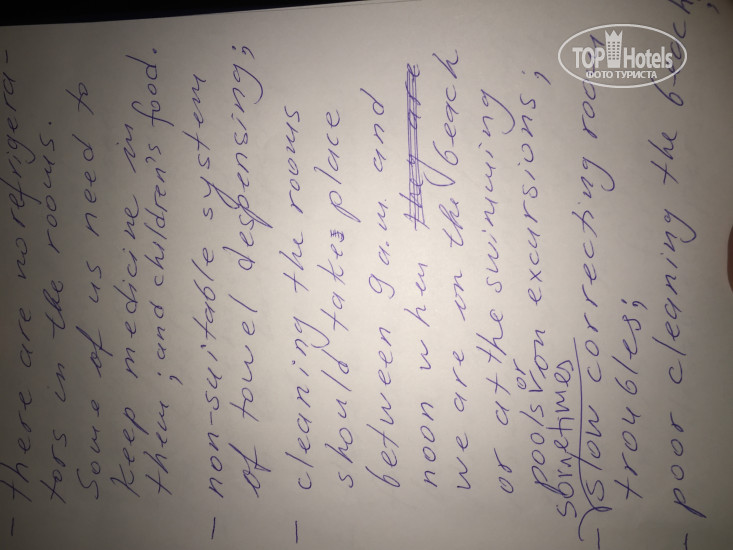 - there are no refrigera-
tors in the rooms.
Some of us need to
keep medicine in
them; and children's food.
- non-suitable system
of towel despensing;
- cleaning the rooms
should takes place
between 9 a.m. and
noon when they are
we are on the beach
or at the swimming
pools or on excursions;
sometimes
- slow correcting room
troubles;
- poor cleaning the beach;
TOP Hotels
ФОТО ТУРИСТА